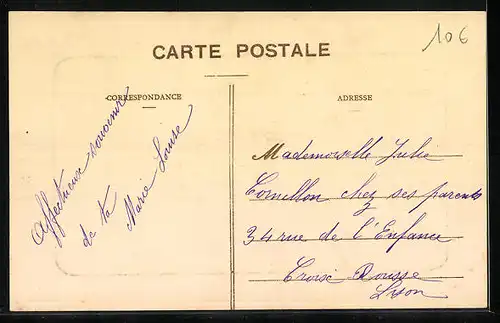 106
CARTE POSTALE
CORRESPONDANCE
ADRESSE
Affectueux souvenir
de ta
Marie Louise
Mademoiselle Julie
Cornillon chez ses parents
34 rue de l'Enfance
Croix Rousse
Lyon